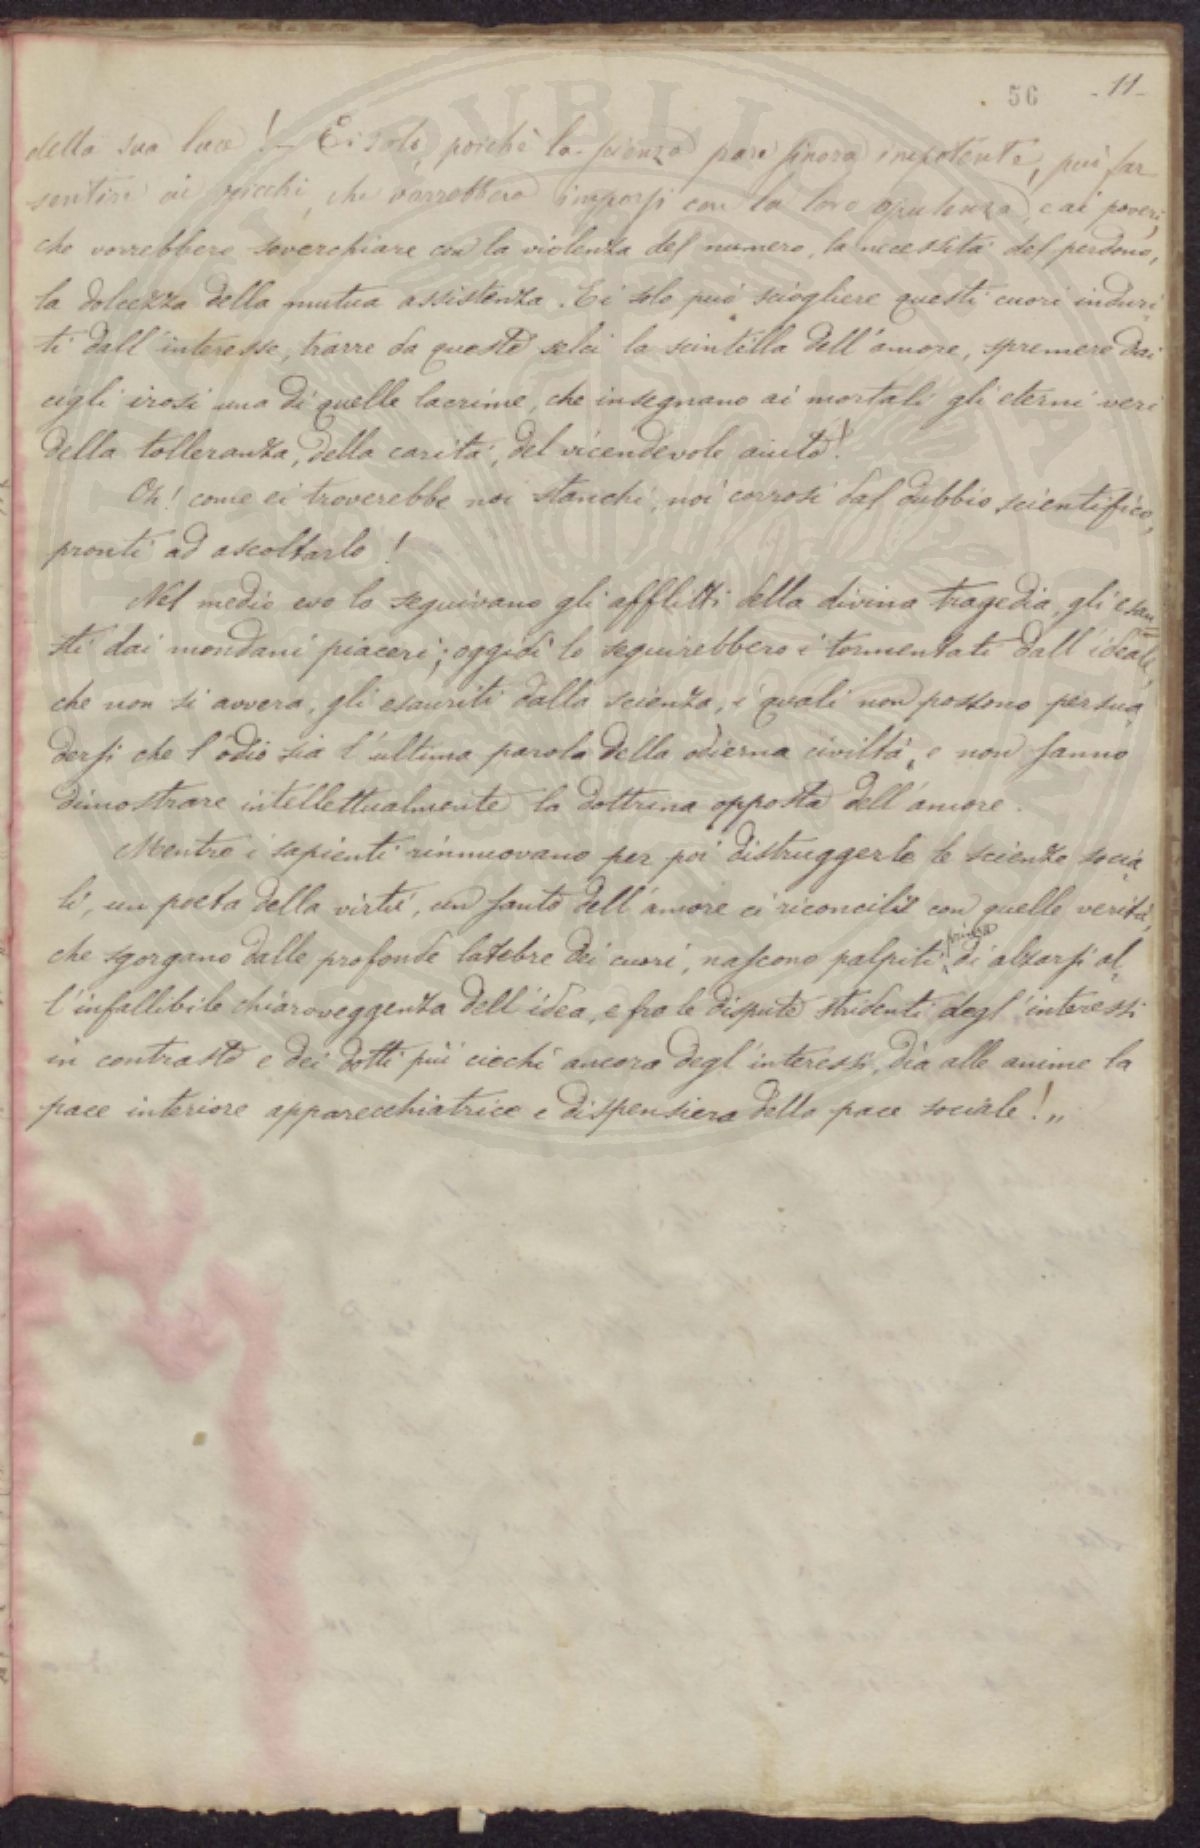 56 -11-
della sua luce! - Ei solo, poichè la scienza pare finora impotente, può far
sentire ai ricchi, che vorrebbero imporsi con la loro opulenza, e ai poveri,
che vorrebbero soverchiare con la violenza del numero, la necessità del perdono,
la dolcezza della mutua assistenza. Ei solo può sciogliere questi cuori induri-
ti dall'interesse, trarre da queste selci la scintilla dell'amore, spremere dai
cigli irosi una di quelle lacrime, che insegnano ai mortali gli eterni veri
della tolleranza, della carità, del vicendevole aiuto!
Oh! come ei troverebbe noi stanchi, noi corrosi dal dubbio scientifico,
pronti ad ascoltarlo!
Nel medio evo lo seguivano gli afflitti della divina tragedia, gli esau-
sti dai mondani piaceri; oggidì lo seguirebbero i tormentati dall'ideale,
che non si avvera, gli esauriti dalla scienza, i quali non possono persua-
dersi che l'odio sia l'ultima parola della odierna civiltà, e non sanno
dimostrare intellettualmente la dottrina opposta dell'amore.
Mentre i sapienti rinnuovano per poi distruggerle le scienze socia-
li, un poeta della virtù, un santo dell'amore ci riconcilii con quelle verità,
che sgorgano dalle profonde latebre dei cuori, nascono palpiti prima di alzarsi al-
l'infallibile chiaroveggenza dell'idea, e fra le dispute stridenti degl'interessi
in contrasto e dei dotti più ciechi ancora degl'interessi, dia alle anime la
pace interiore apparecchiatrice e dispensiera della pace sociale!„